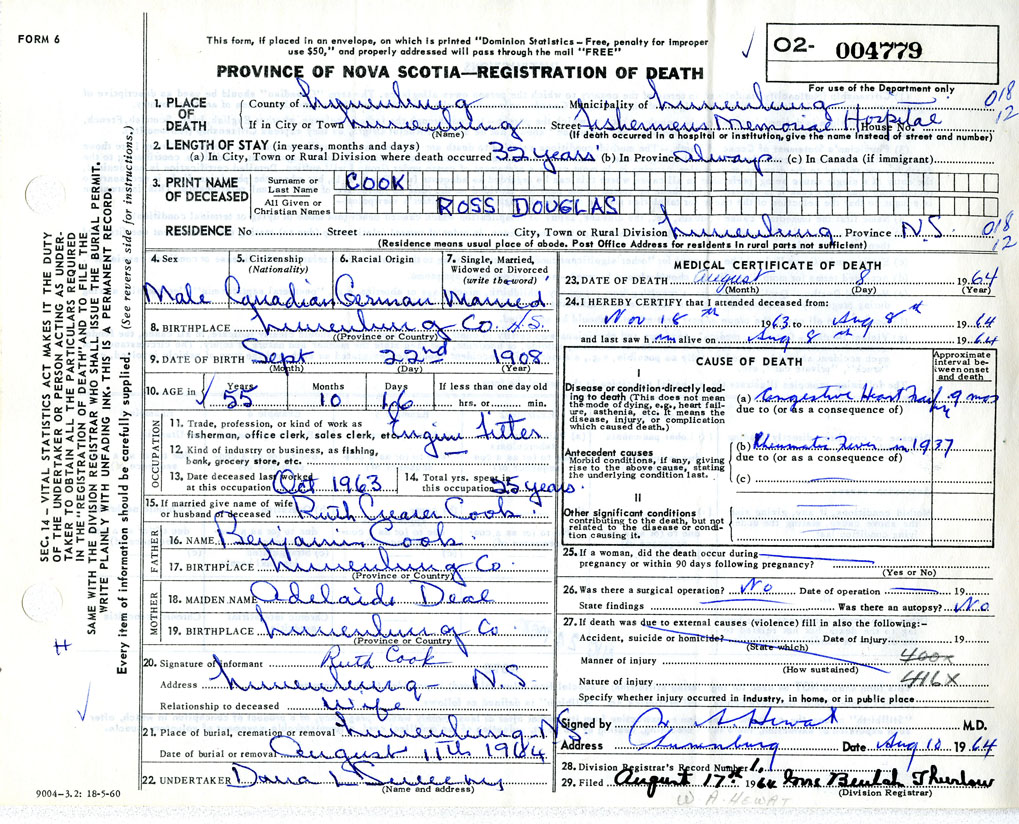 FORM 6
This form, if placed in an envelope, on which is printed "Dominion Statistics—Free, penalty for improper
use $50," and properly addressed will pass through the mail "FREE"
02- 004779
PROVINCE OF NOVA SCOTIA—REGISTRATION OF DEATH
For use of the Department only
1. PLACE OF DEATH County of Lunenburg Municipality of Lunenburg 018
If in City or Town Lunenburg Street Fishermens Memorial Hospital House No. 12
(Name) (If death occurred in a hospital or institution, give the name instead of street and number)
2. LENGTH OF STAY (in years, months and days)
(a) In City, Town or Rural Division where death occurred 32 years (b) In Province Always (c) In Canada (if immigrant)
3. PRINT NAME OF DECEASED Surname or Last Name COOK
All Given or Christian Names ROSS DOUGLAS
RESIDENCE No Street City, Town or Rural Division Lunenburg Province N.S. 018
(Residence means usual place of abode. Post Office Address for residents in rural parts not sufficient) 12
4. Sex 5. Citizenship (Nationality) 6. Racial Origin 7. Single, Married, Widowed or Divorced (write the word)
Male Canadian German Married
8. BIRTHPLACE Lunenburg Co. N.S.
(Province or Country)
9. DATE OF BIRTH Sept 22nd 1908
(Month) (Day) (Year)
10. AGE in Years Months Days If less than one day old
55 10 16 hrs. or min.
OCCUPATION
11. Trade, profession, or kind of work as
fisherman, office clerk, sales clerk, etc. Engine Fitter
12. Kind of industry or business, as fishing,
bank, grocery store, etc.
13. Date deceased last worked at this occupation Oct 1963 14. Total yrs. spent in this occupation 35 years.
15. If married give name of wife
or husband of deceased Ruth Creaser Cook
FATHER
16. NAME Benjamin Cook
17. BIRTHPLACE Lunenburg Co.
(Province or Country)
MOTHER
18. MAIDEN NAME Adelaide Deal
19. BIRTHPLACE Lunenburg Co
(Province or Country)
20. Signature of informant Ruth Cook
Address Lunenburg - N.S.
Relationship to deceased Wife
21. Place of burial, cremation or removal Lunenburg - N.S.
Date of burial or removal August 11th 1964
22. UNDERTAKER
(Name and address)
MEDICAL CERTIFICATE OF DEATH
23. DATE OF DEATH August 8 1964
(Month) (Day) (Year)
24. I HEREBY CERTIFY that I attended deceased from:
Nov 18th 1963 to Aug 8th 1964
and last saw him alive on Aug 8th 1964
CAUSE OF DEATH
Approximate interval between onset and death
I
Disease or condition directly leading to death (This does not mean the mode of dying, eg., heart failure, asthenia, etc. It means the disease, injury, or complication which caused death.)
(a) Congestive Heart Failure 9 mos
due to (or as a consequence of)
Antecedent causes
Morbid conditions, if any, giving rise to the above cause, stating the underlying condition last.
(b) Rheumatic Fever in 1937
due to (or as a consequence of)
(c)
II
Other significant conditions
contributing to the death, but not related to the disease or condition causing it.
25. If a woman, did the death occur during
pregnancy or within 90 days following pregnancy?
(Yes or No)
26. Was there a surgical operation? No Date of operation 19
State findings Was there an autopsy? No
27. If death was due to external causes (violence) fill in also the following:-
Accident, suicide or homicide? Date of injury 19
(State which)
Manner of injury 400x
(How sustained)
Nature of injury 416X
Specify whether injury occurred in Industry, in home, or in public place
Signed by W. A. Hewat M.D.
Address Lunenburg Date Aug 10 1964
28. Division Registrar's Record Number 1.
29. Filed August 17th 1964 Beulah Thurlow
(Division Registrar)
W A. HEWAT
9004-3.2: 18-5-60
SEC. 14 - VITAL STATISTICS ACT MAKES IT THE DUTY
OF THE UNDERTAKER OR PERSON ACTING AS UNDER-
TAKER TO OBTAIN ALL THE PARTICULARS REQUIRED
IN THE "REGISTRATION OF DEATH" AND TO FILE THE
SAME WITH THE DIVISION REGISTRAR WHO SHALL ISSUE THE BURIAL PERMIT.
WRITE PLAINLY WITH UNFADING INK. THIS IS A PERMANENT RECORD.
Every item of information should be carefully supplied. (See reverse side for instructions.)
H